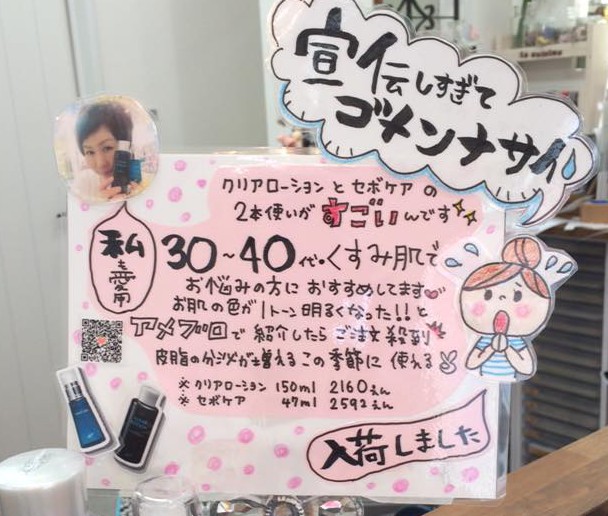 宣伝しすぎて
ゴメンナサイ
クリアローションとセボケアの
2本使いがすごいんです
私も愛用
30~40代のくすみ肌で
お悩みの方におすすめしてます
お肌の色が1トーン明るくなった!!と
アメブロで紹介したらご注文殺到
皮脂の分泌が増えるこの季節に使える
※クリアローション 150ml 2160えん
※セボケア 47ml 2592えん
入荷しました